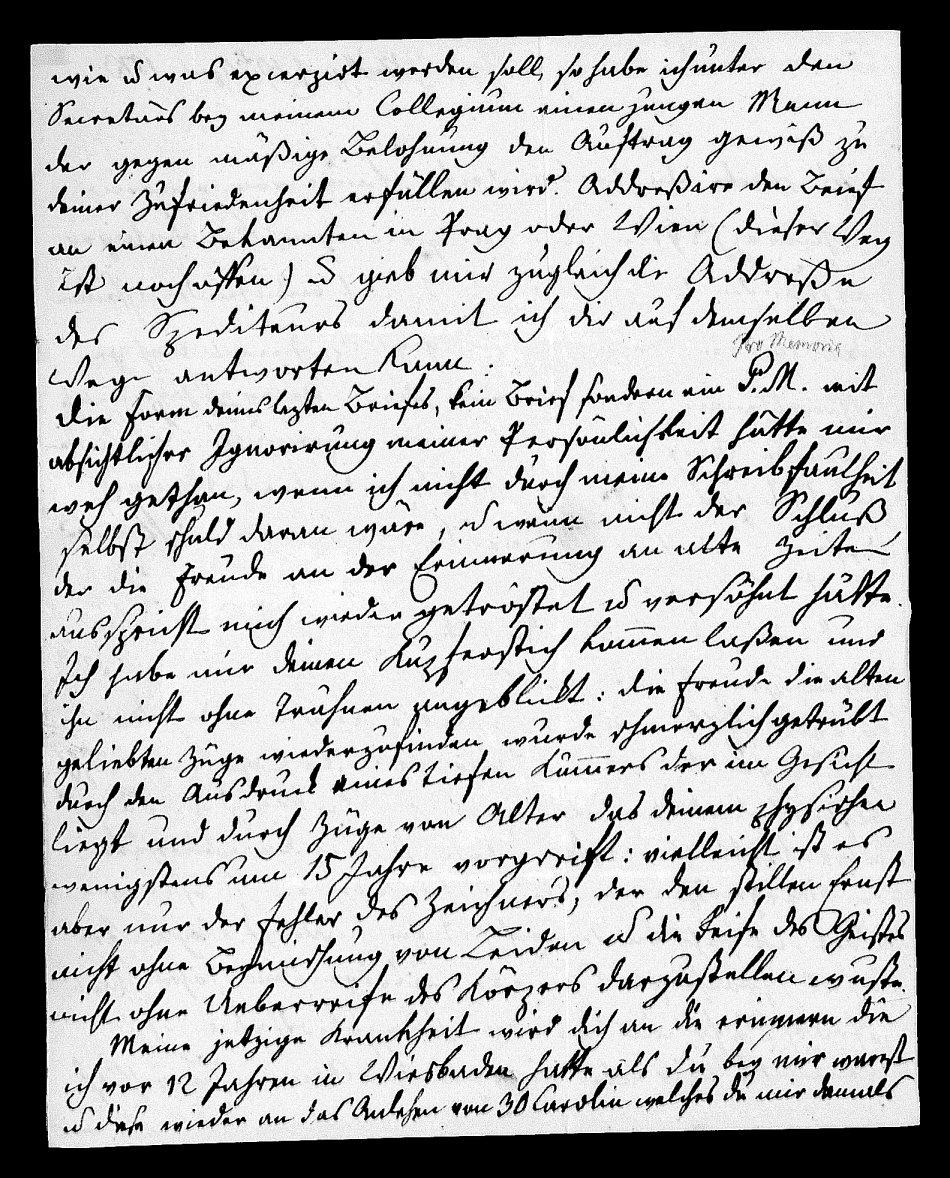 wie u was excerzirt werden soll, so habe ich unter den
Secretärs bey meinem Collegium einen jungen Mann
der gegen mäßige Belohnung den Auftrag gewiß zu
deiner Zufriedenheit erfüllen wird. Addreßire den Brief
an einen Bekannten in Prag oder Wien (dieser Weg
ist noch offen) u gieb mir zugleich die Addreße
des Spediteurs damit ich dir auf demselben
Pro Memoria
Wege antworten kann.
Die Form deines lezten Briefes, kein Brief sondern ein P.M. mit
absichtlicher Ignorirung meiner Persönlichkeit hätte mir
weh gethan, wenn ich nicht durch meine Schreibfaulheit
selbst schuld daran wäre, u wenn nicht der Schluß
der die Freude an der Erinnerung an alte Zeiten
ausspricht mich wieder getröstet u versöhnt hätte.
Ich habe mir deinen Kupferstich kommen laßen und
ihn nicht ohne Trähnen angeblikt: die Freude die alten
geliebten Züge wiederzufinden wurde schmerzlich getrübt
durch den Ausdruck eines tiefen Kummers der im Gesicht
liegt und durch Züge von Alter das deinem physischen
wenigstens um 15 Jahre vorgreift: vielleicht ist es
aber nur der Fehler des Zeichners, der den stillen Ernst
nicht ohne von Leiden u die Reife des Geistes
nicht ohne Ueberreife des Körpers darzustellen wuste.
Meine jetzige Krankheit wird dich an die erinnern die
ich vor 12 Jahren in Wiesbaden hatte als du bey mir warest
u diese wieder an das Anlehen von 30 Carolin welches du mir damals